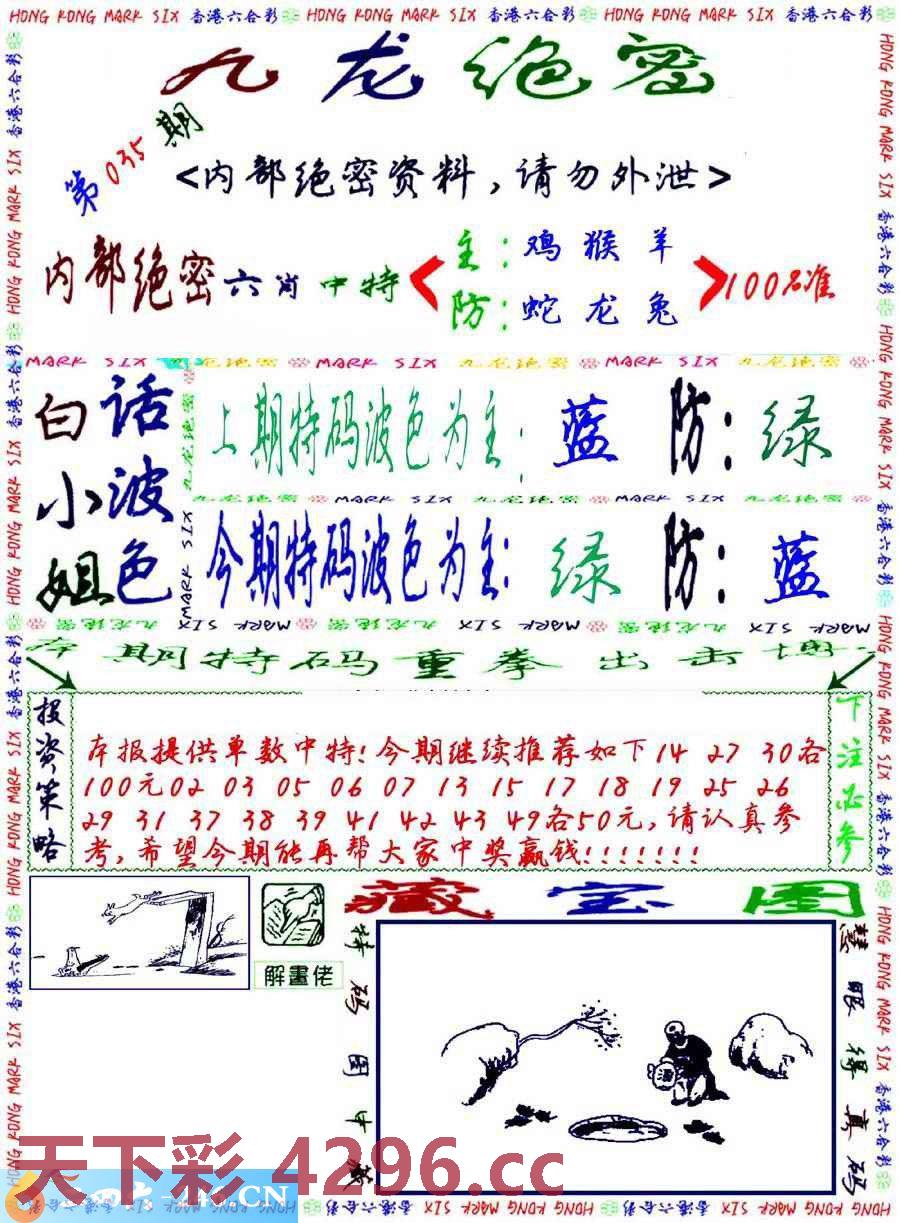 HONG KONG MARK SIX 香港六合彩 HONG KONG MARK SIX 香港六合彩 HONG KONG MARK SIX 香港六合彩
九龙绝密
第035期
<内部绝密资料,请勿外泄>
内部绝密六肖中特
主:鸡猴羊
防:蛇龙兔
100%准
MARK SIX 九龙绝密 MARK SIX 九龙绝密 MARK SIX 九龙绝密
白话
小波
姐色
上期特码波色为主:蓝 防:绿
九龙绝密 MARK SIX 九龙绝密 MARK SIX 九龙绝密
今期特码波色为主:绿 防:蓝
本期特码重拳出击
投资策略
本报提供单数中特!今期继续推荐如下14 27 30各
100元02 03 05 06 07 13 15 17 18 19 25 26
29 31 37 38 39 41 42 43 49各50元,请认真参
考,希望今期能再帮大家中奖赢钱!!!!!!!
下注必参
藏宝图
解畫佬
特码图中
慧眼得真码
酒
天下彩 4296.cc